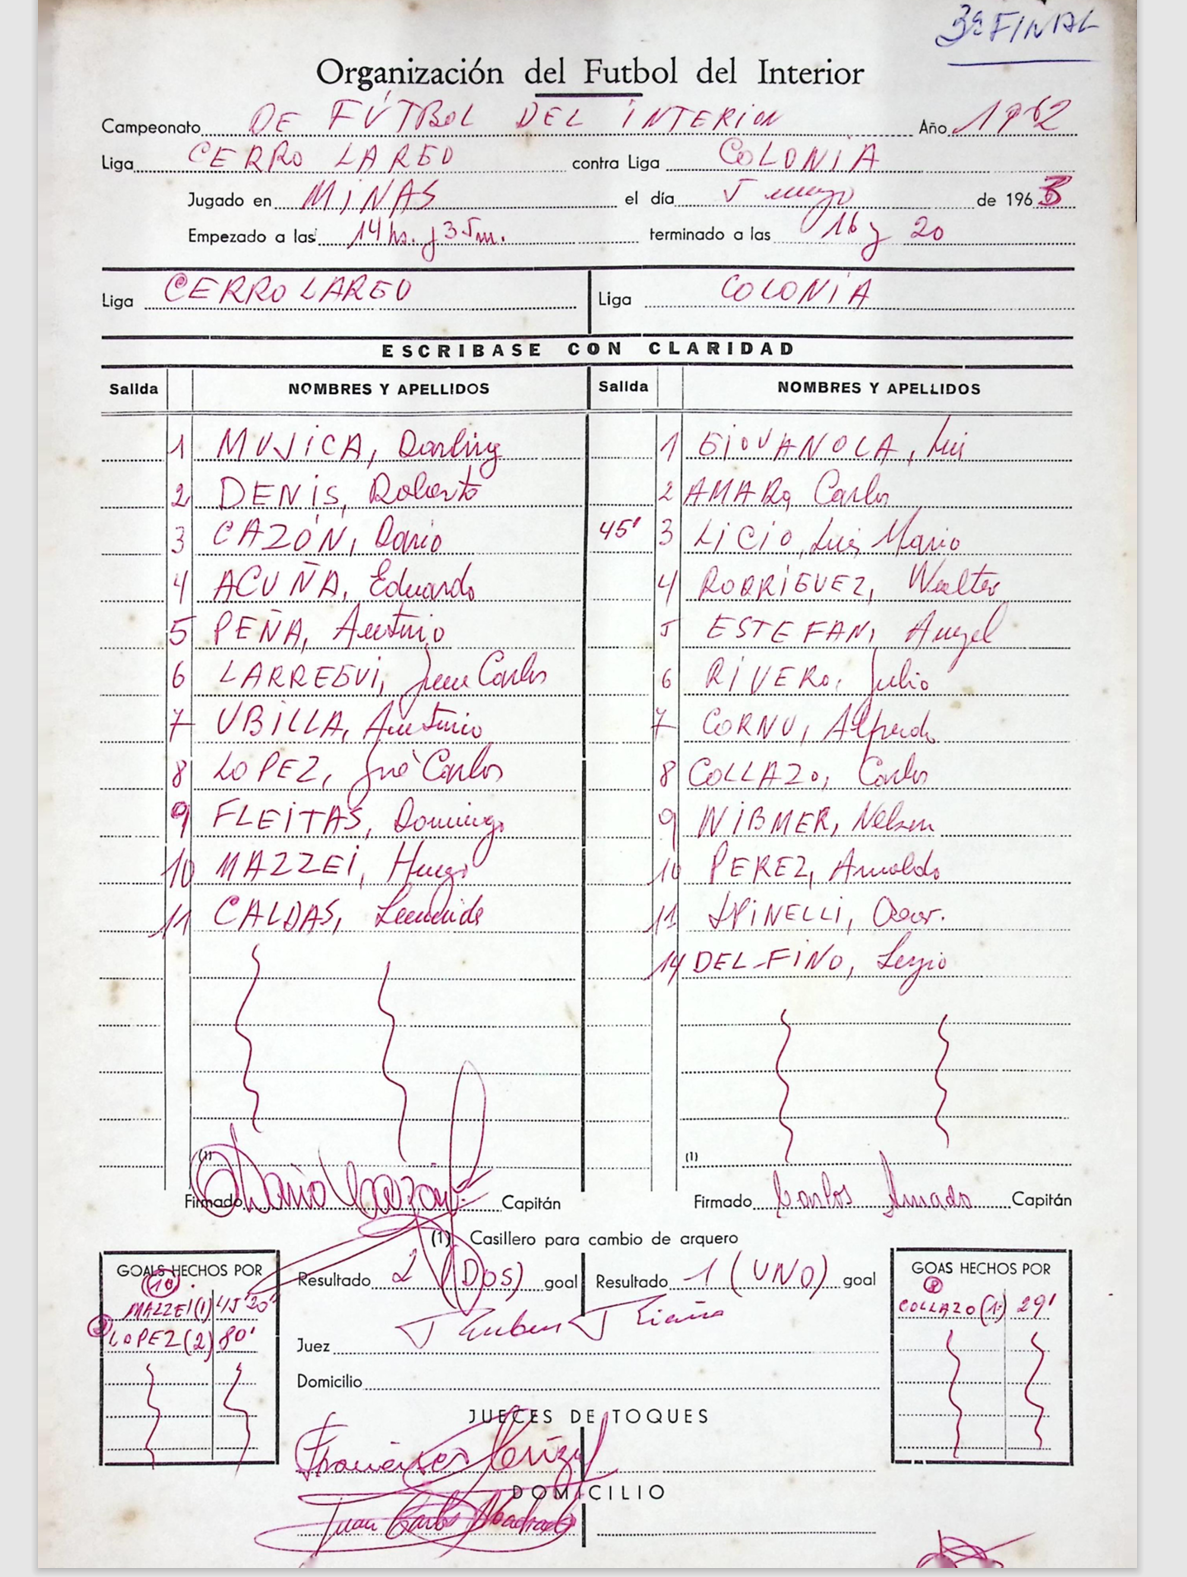 3ª FINAL
Organización del Futbol del Interior
Campeonato DE FÚTBOL DEL INTERIOR Año 1962
Liga CERRO LARGO contra Liga COLONIA
Jugado en MINAS el día 5 mayo de 1963
Empezado a las 14 hs. y 35 m. terminado a las 16 y 20
Liga CERRO LARGO Liga COLONIA
ESCRIBASE CON CLARIDAD
Salida NOMBRES Y APELLIDOS Salida NOMBRES Y APELLIDOS
1 MUJICA, Darling 1 GIOVANOLA, Luis
2 DENIS, Roberto 2 AMARO, Carlos
3 CAZÓN, Dario 45' 3 LICIO, Luis Mario
4 ACUÑA, Eduardo 4 RODRIGUEZ, Walter
5 PEÑA, Antonio 5 ESTEFAN, Angel
6 LARREGUI, Juan Carlos 6 RIVERO, Julio
7 UBILLA, Antonio 7 CORNU, Alfredo
8 LOPEZ, José Carlos 8 COLLAZO, Carlos
9 FLEITAS, Domingo 9 WIBMER, Nelson
10 MAZZEI, Hugo 10 PEREZ, Arnoldo
11 CALDAS, Leonidas 11 SPINELLI, Oscar.
14 DELFINO, Sergio
(1) (1)
Firmado Dario Cazón Capitán Firmado Carlos Amado Capitán
(1) Casillero para cambio de arquero
GOALS HECHOS POR GOAS HECHOS POR
Resultado 2 (DOS) goal Resultado 1 (UNO) goal
10 8
MAZZEI (1) 45' 20' COLLAZO (1) 29'
LOPEZ (2) 80'
Juez Ruben
Domicilio
JUECES DE TOQUES
Francisco
DOMICILIO
Juan Carlos